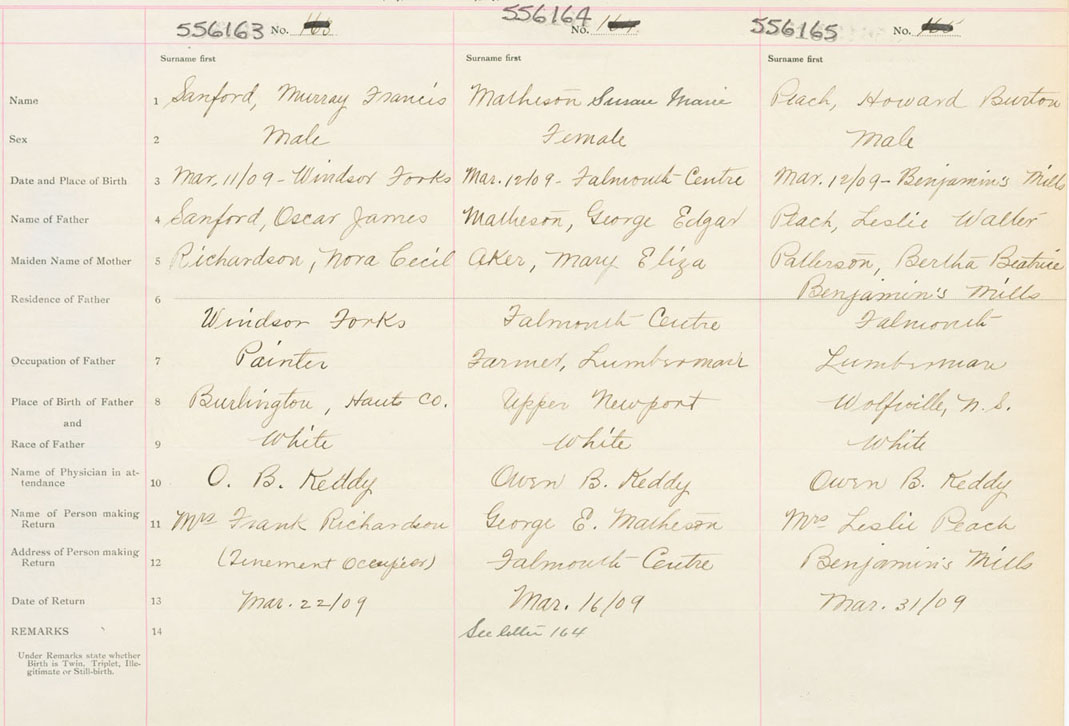 556163 No. 163 556164 No. 164 556165 No. 165
Surname first Surname first Surname first
Name 1 Sanford, Murray Francis Matheson Susan Marie Peach, Howard Burton
Sex 2 Male Female Male
Date and Place of Birth 3 Mar, 11/09 - Windsor Forks Mar. 12/09 - Falmouth Centre Mar. 12/09 - Benjamin's Mills
Name of Father 4 Sanford, Oscar James Matheson, George Edgar Peach, Leslie Walter
Maiden Name of Mother 5 Richardson, Nora Cecil Aker, Mary Eliza Patterson, Bertha Beatrice
Residence of Father 6 Benjamin's Mills
Windsor Forks Falmouth Centre Falmouth
Occupation of Father 7 Painter Farmer, Lumberman Lumberman
Place of Birth of Father 8 Burlington, Hants Co. Upper Newport Wolfville, N.S.
and
Race of Father 9 White White White
Name of Physician in at-
tendance 10 O. B. Keddy Owen B. Keddy Owen B. Keddy
Name of Person making
Return 11 Mrs Frank Richardson George E. Matheson Mrs Leslie Peach
Address of Person making
Return 12 (Tenement Occupier) Falmouth Centre Benjamin's Mills
Date of Return 13 Mar. 22/09 Mar. 16/09 Mar. 31/09
REMARKS 14 See letter 164
Under Remarks state whether
Birth is Twin, Triplet, Ille-
gitimate or Still-birth.